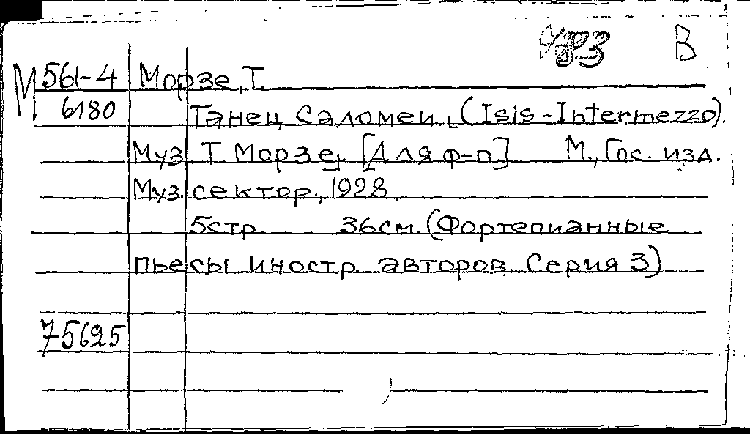 В
М 561-4 Морзе, Т.
6180 Танец Саломеи, (Isis-Intermezzo).
Муз. Т. Морзе, [Для ф-п] М., Гос. изд.
Муз. сектор, 1928,
5стр 36см. (Фортепианные
пьесы иностр. авторов. Серия 3)
75625